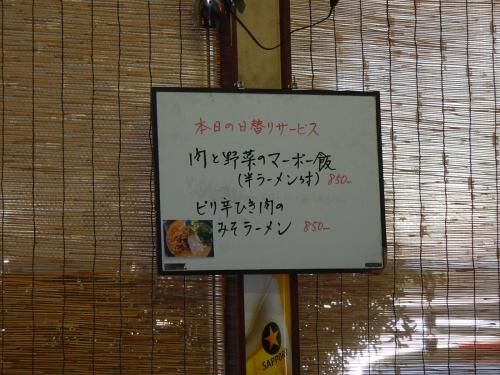 本日の日替りサービス
肉と野菜のマーボー飯
(半ラーメン付) 850-
ピリ辛ひき肉の
みそラーメン 850-
SAPPORO